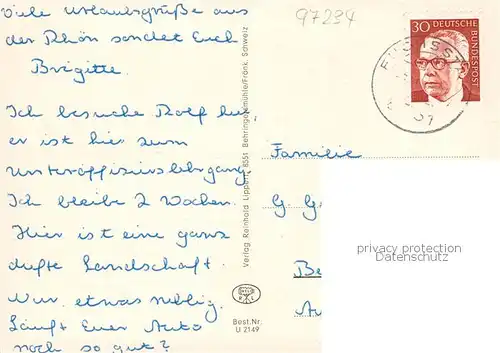 Viele Urlaubsgrüße aus
der Rhön sendet Euch
Brigitte.
Ich besuche Rolf hier,
er ist hier zum
Unteroffizierslehrgang.
Ich bleibe 2 Wochen.
Hier ist eine ganz
dufte Landschaft.
Nur etwas neblig.
Läuft Euer Auto
noch so gut?
97234
30 DEUTSCHE
BUNDESPOST
Verlag Reinhold Lippert, 8551 Behringersmühle/Fränk. Schweiz
Best.Nr.
U 2149
Familie
G. G
Be
privacy protection
Datenschutz